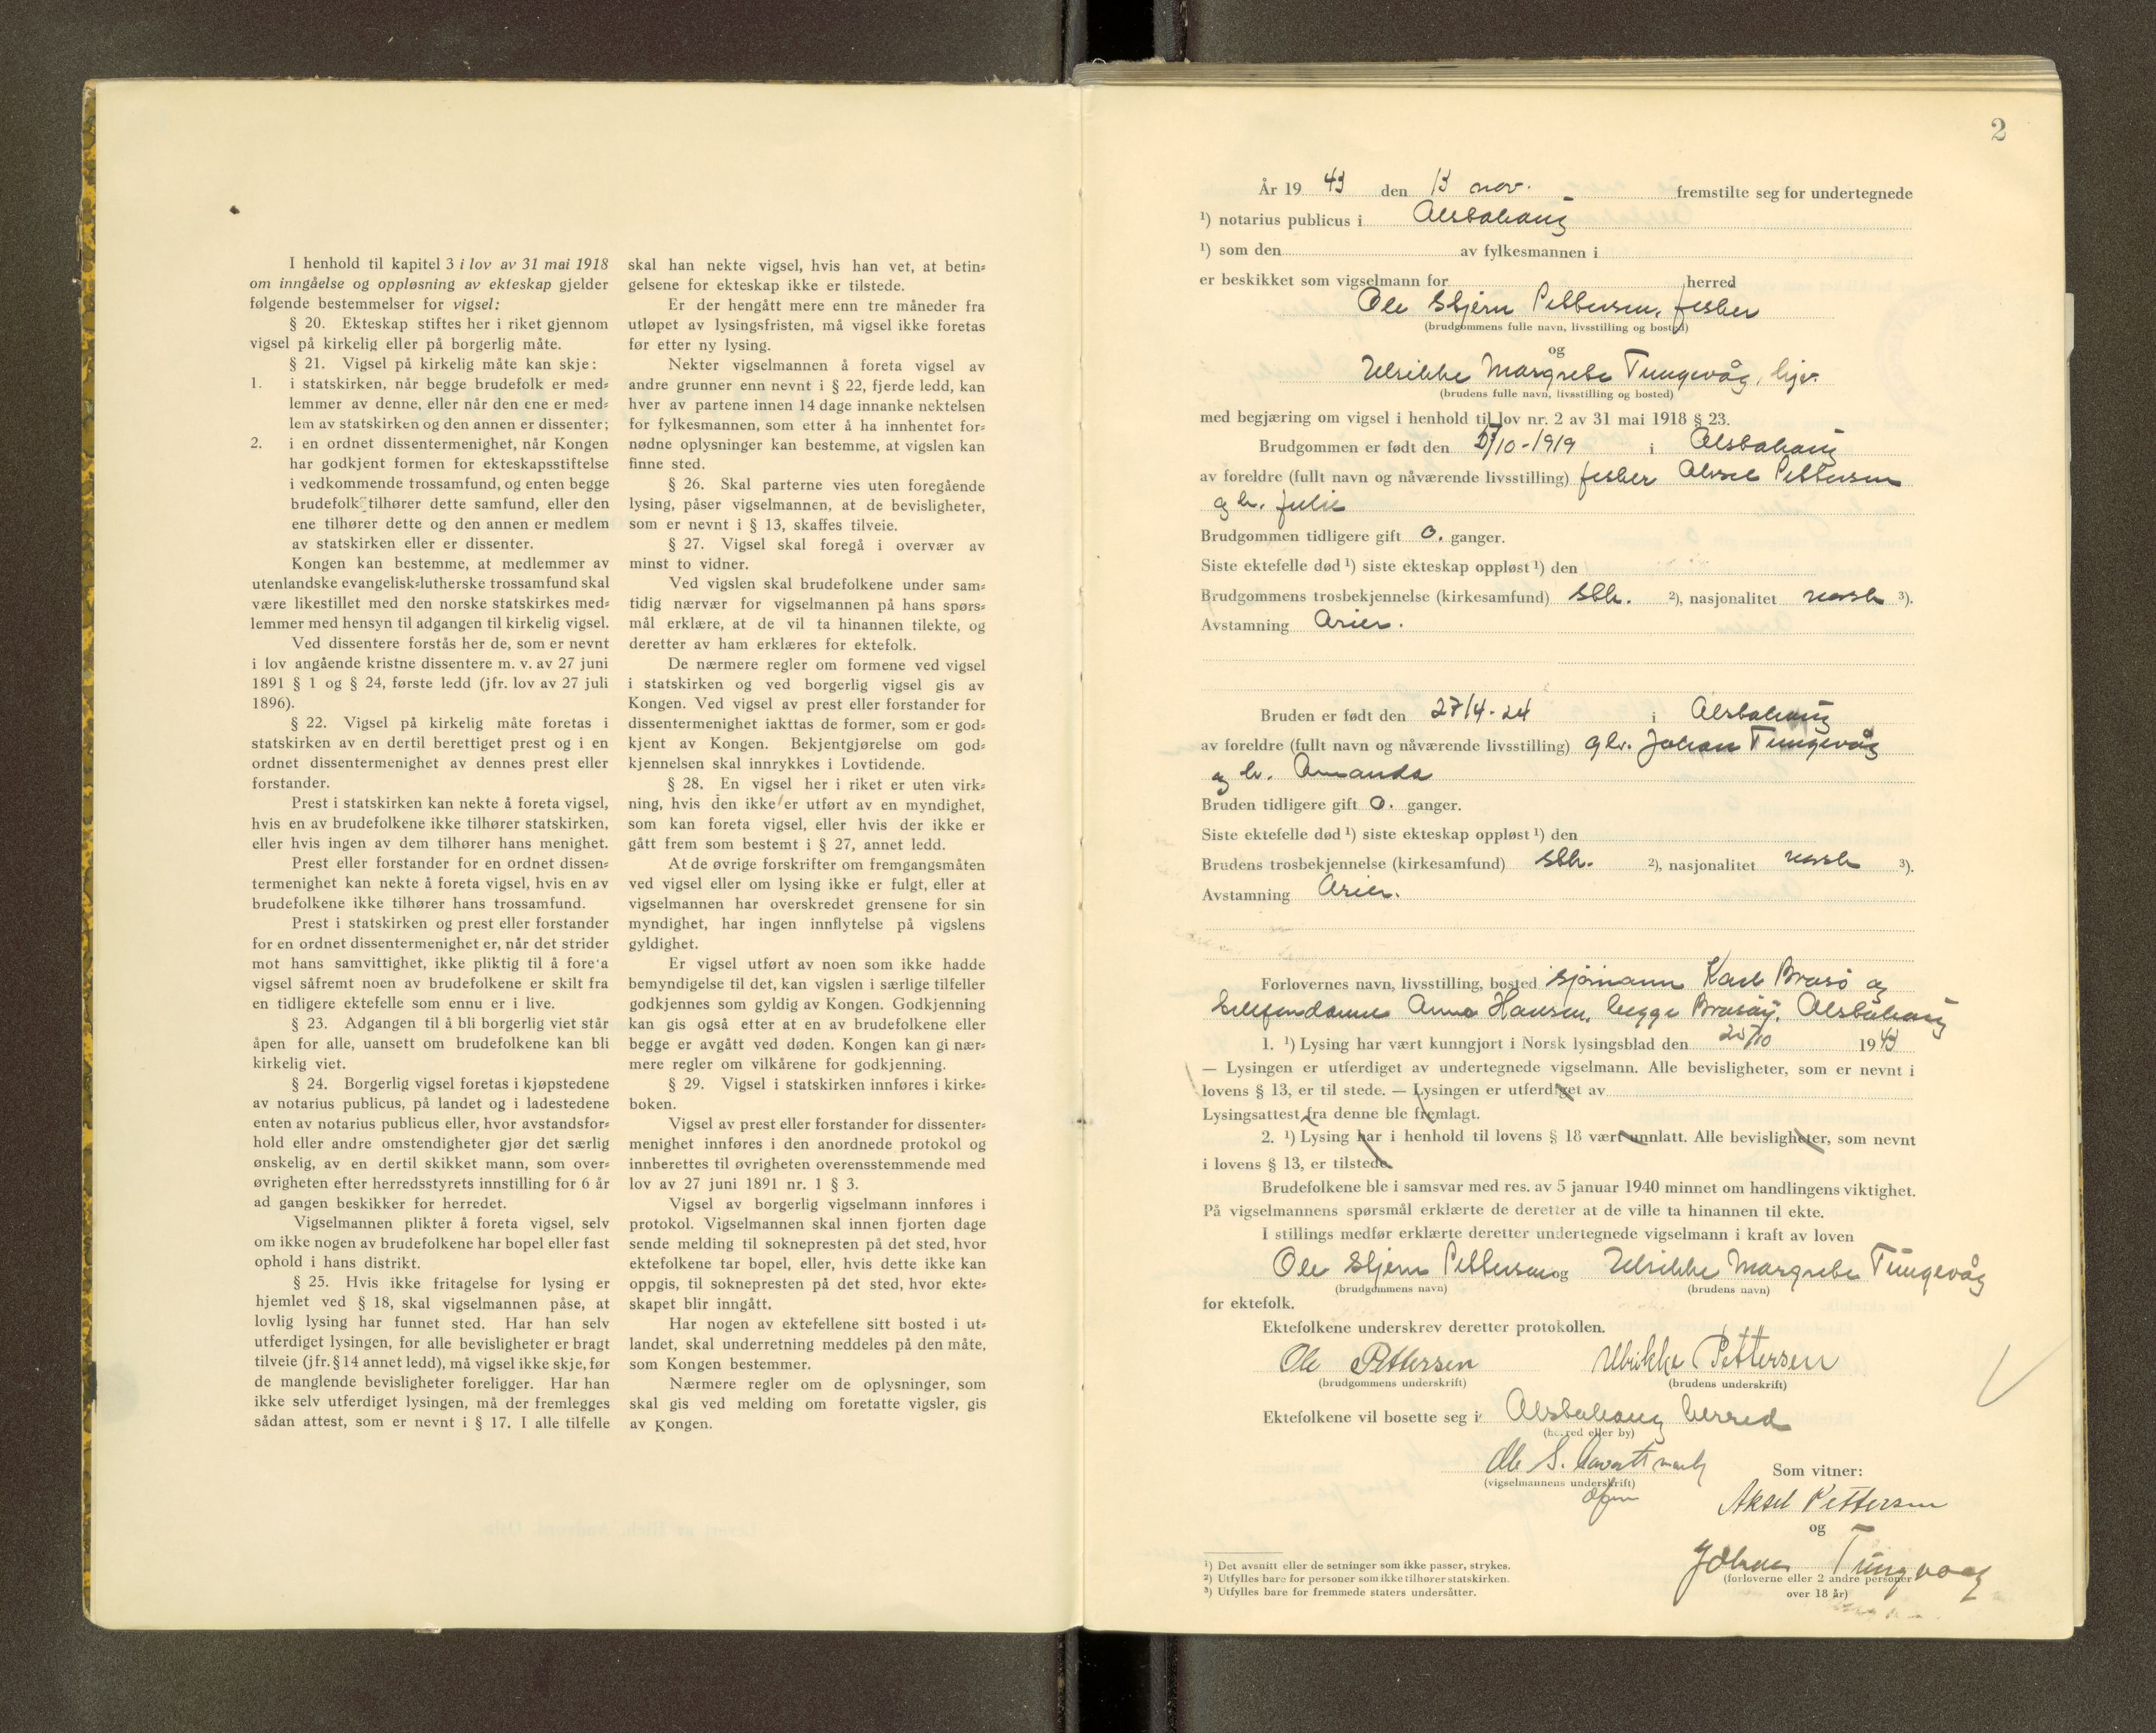 I henhold til kapitel 3 i lov av 31 mai 1918
om inngåelse og oppløsning av ekteskap gjelder
følgende bestemmelser for vigsel:
§ 20. Ekteskap stiftes her i riket gjennom
vigsel på kirkelig eller på borgerlig måte.
§ 21. Vigsel på kirkelig måte kan skje:
1. i statskirken, når begge brudefolk er med-
lemmer av denne, eller når den ene er med-
lem av statskirken og den annen er dissenter;
2. i en ordnet dissentermenighet, når Kongen
har godkjent formen for ekteskapsstiftelse
i vedkommende trossamfund, og enten begge
brudefolk tilhører dette samfund, eller den
ene tilhører dette og den annen er medlem
av statskirken eller er dissenter.
Kongen kan bestemme, at medlemmer av
utenlandske evangelisk-lutherske trossamfund skal
være likestillet med den norske statskirkes med-
lemmer med hensyn til adgangen til kirkelig vigsel.
Ved dissentere forstås her de, som er nevnt
i lov angående kristne dissentere m. v. av 27 juni
1891 § 1 og § 24, første ledd (jfr. lov av 27 juli
1896).
§ 22. Vigsel på kirkelig måte foretas i
statskirken av en dertil berettiget prest og i en
ordnet dissentermenighet av dennes prest eller
forstander.
Prest i statskirken kan nekte å foreta vigsel,
hvis en av brudefolkene ikke tilhører statskirken,
eller hvis ingen av dem tilhører hans menighet.
Prest eller forstander for en ordnet dissen-
termenighet kan nekte å foreta vigsel, hvis en av
brudefolkene ikke tilhører hans trossamfund.
Prest i statskirken og prest eller forstander
for en ordnet dissentermenighet er, når det strider
mot hans samvittighet, ikke pliktig til å fore'a
vigsel såfremt noen av brudefolkene er skilt fra
en tidligere ektefelle som ennu er i live.
§ 23. Adgangen til å bli borgerlig viet står
åpen for alle, uansett om brudefolkene kan bli
kirkelig viet.
§ 24. Borgerlig vigsel foretas i kjøpstedene
av notarius publicus, på landet og i ladestedene
enten av notarius publicus eller, hvor avstandsfor-
hold eller andre omstendigheter gjør det særlig
ønskelig, av en dertil skikket mann, som over-
øvrigheten efter herredsstyrets innstilling for 6 år
ad gangen beskikker for herredet.
Vigselmannen plikter å foreta vigsel, selv
om ikke nogen av brudefolkene har bopel eller fast
ophold i hans distrikt.
§ 25. Hvis ikke fritagelse for lysing er
hjemlet ved § 18, skal vigselmannen påse, at
lovlig lysing har funnet sted. Har han selv
utferdiget lysingen, før alle bevisligheter er bragt
tilveie (jfr. § 14 annet ledd), må vigsel ikke skje, før
de manglende bevisligheter foreligger. Har han
ikke selv utferdiget lysingen, må der fremlegges
sådan attest, som er nevnt i § 17. I alle tilfelle
skal han nekte vigsel, hvis han vet, at betin-
gelsene for ekteskap ikke er tilstede.
Er der hengått mere enn tre måneder fra
utløpet av lysingsfristen, må vigsel ikke foretas
før etter ny lysing.
Nekter vigselmannen å foreta vigsel av
andre grunner enn nevnt i § 22, fjerde ledd, kan
hver av partene innen 14 dage innanke nektelsen
for fylkesmannen, som etter å ha innhentet for-
nødne oplysninger kan bestemme, at vigslen kan
finne sted.
§ 26. Skal parterne vies uten foregående
lysing, påser vigselmannen, at de bevisligheter,
som er nevnt i § 13, skaffes tilveie.
§ 27. Vigsel skal foregå i overvær av
minst to vidner.
Ved vigslen skal brudefolkene under sam-
tidig nærvær for vigselmannen på hans spørs-
mål erklære, at de vil ta hinannen tilekte, og
deretter av ham erklæres for ektefolk.
De nærmere regler om formene ved vigsel
i statskirken og ved borgerlig vigsel gis av
Kongen. Ved vigsel av prest eller forstander for
dissentermenighet iakttas de former, som er god-
kjent av Kongen. Bekjentgjørelse om god-
kjennelsen skal innrykkes i Lovtidende.
§ 28. En vigsel her i riket er uten virk-
ning, hvis den ikke er utført av en myndighet,
som kan foreta vigsel, eller hvis der ikke er
gått frem som bestemt i § 27, annet ledd.
At de øvrige forskrifter om fremgangsmåten
ved vigsel eller om lysing ikke er fulgt, eller at
vigselmannen har overskredet grensene for sin
myndighet, har ingen innflytelse på vigslens
gyldighet.
Er vigsel utført av noen som ikke hadde
bemyndigelse til det, kan vigslen i særlige tilfeller
godkjennes som gyldig av Kongen. Godkjenning
kan gis også etter at en av brudefolkene eller
begge er avgått ved døden. Kongen kan gi nær-
mere regler om vilkårene for godkjenning.
§ 29. Vigsel i statskirken innføres i kirke-
boken.
Vigsel av prest eller forstander for dissenter-
menighet innføres i den anordnede protokol og
innberettes til øvrigheten overensstemmende med
lov av 27 juni 1891 nr. 1 § 3.
Vigsel av borgerlig vigselmann innføres i
protokol. Vigselmannen skal innen fjorten dage
sende melding til soknepresten på det sted, hvor
ektefolkene tar bopel, eller, hvis dette ikke kan
oppgis, til soknepresten på det sted, hvor ekte-
skapet blir inngått.
Har nogen av ektefellene sitt bosted i ut-
landet, skal underretning meddeles på den måte,
som Kongen bestemmer.
Nærmere regler om de oplysninger, som
skal gis ved melding om foretatte vigsler, gis
av Kongen.
2
År 19 43 den 13 nov. fremstilte seg for undertegnede
1) notarius publicus i Alstahaug
1) som den av fylkesmannen i
er beskikket som vigselmann for herred
Ole Stjern Pettersen, fisker
(brudgommens fulle navn, livsstilling og bosted)
og
Ulrikke Margrete Tungevåg, hjv.
(brudens fulle navn, livsstilling og bosted)
med begjæring om vigsel i henhold til lov nr. 2 av 31 mai 1918 § 23.
Brudgommen er født den /10-1919 i Alstahaug
av foreldre (fullt navn og nåværende livsstilling) fisker Aksel Pettersen
og h. Julie
Brudgommen tidligere gift 0. ganger.
Siste ektefelle død 1) siste ekteskap oppløst 1) den
Brudgommens trosbekjennelse (kirkesamfund) stk. 2), nasjonalitet norsk 3).
Avstamning Arier.
Bruden er født den 27/4-24 i Alstahaug
av foreldre (fullt navn og nåværende livsstilling) gbr. Johan Tungevåg
og h. Amanda
Bruden tidligere gift 0. ganger.
Siste ektefelle død 1) siste ekteskap oppløst 1) den
Brudens trosbekjennelse (kirkesamfund) stk. 2), nasjonalitet norsk 3).
Avstamning Arier.
Forlovernes navn, livsstilling, bosted sjømann Karl Brasø og
telefondame Anna Hansen, begge Brasøy, Alstahaug
1. 1) Lysing har vært kunngjort i Norsk lysingsblad den /10 1943
— Lysingen er utferdiget av undertegnede vigselmann. Alle bevisligheter, som er nevnt i
lovens § 13, er til stede. — Lysingen er utferdiget av
Lysingsattest fra denne ble fremlagt.
2. 1) Lysing har i henhold til lovens § 18 vært unnlatt. Alle bevisligheter, som nevnt
i lovens § 13, er tilstede.
Brudefolkene ble i samsvar med res. av 5 januar 1940 minnet om handlingens viktighet.
På vigselmannens spørsmål erklærte de deretter at de ville ta hinannen til ekte.
I stillings medfør erklærte deretter undertegnede vigselmann i kraft av loven
Ole Stjern Pettersen og Ulrikke Margrete Tungevåg
(brudgommens navn) (brudens navn)
for ektefolk.
Ektefolkene underskrev deretter protokollen.
Ole Pettersen Ulrikke Pettersen
(brudgommens underskrift) (brudens underskrift)
Ektefolkene vil bosette seg i Alstahaug herred
(herred eller by)
Ole S.
(vigselmannens underskrift)
Som vitner:
Aksel Pettersen
og
Johan Tungvaag
(forloverne eller 2 andre personer
over 18 år)
1) Det avsnitt eller de setninger som ikke passer, strykes.
2) Utfylles bare for personer som ikke tilhører statskirken.
3) Utfylles bare for fremmede staters undersåtter.